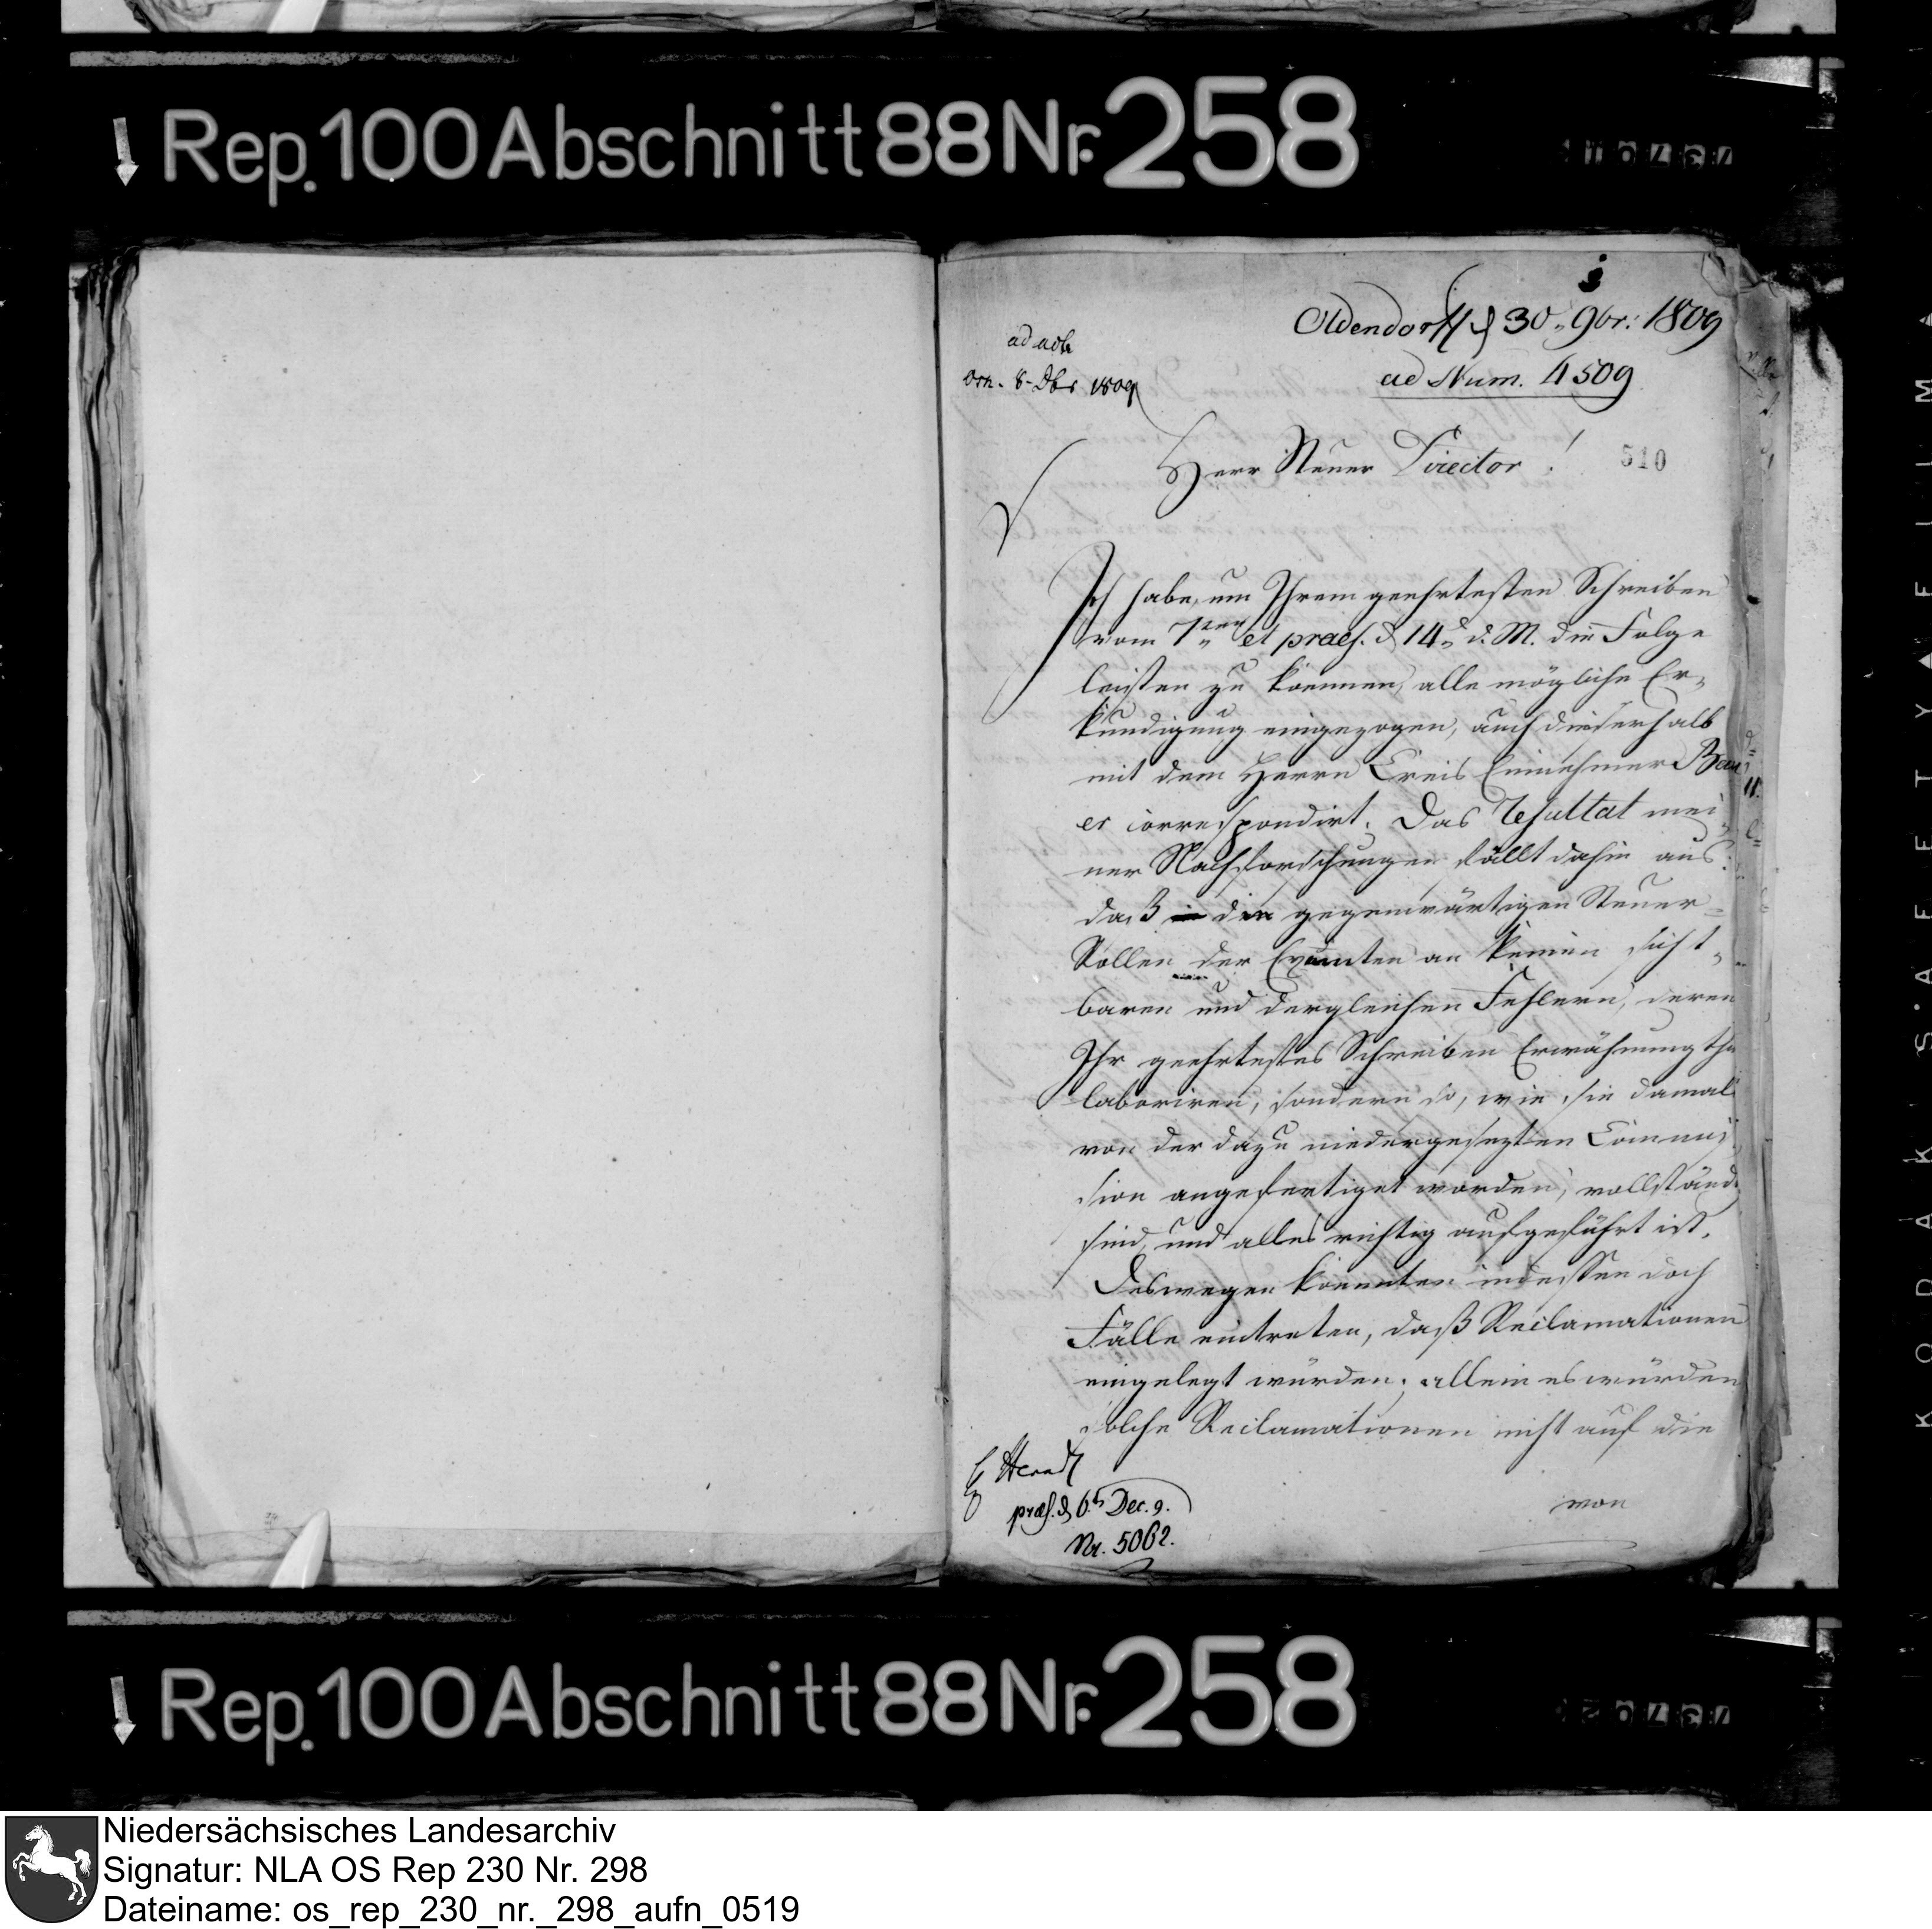 Rep. 100 Abschnitt 88 Nr. 258
Oldendorff d 30. 9br: 1809
ad Num. 4509
ad acta
Osn. 8. Dbr 1809
Herr Steuer Director!
510
Ich habe, um Ihrem geehrtesten Schreiben
vom 7ten et praes. d 14. d. M. die Folge
leisten zu koennen, alle mögliche Er-
kundigung eingezogen, auch dieserhalb
mit dem Herrn Creis Einnehmer Bau
er correspondirt. Das Resultat mei
ner Nachforschungen fällt dahin aus:
daß die gegenwärtigen Steuer-
Rollen der Exemten an keinen sicht-
baren und dergleichen Fehlern, deren
Ihr geehrtestes Schreiben Erwähnung thu
laboriren, sondern so, wie sie damals
von der dazu niedergesezten Commis
sion angefertiget worden, vollständ
sind, und alles richtig aufgeführt ist.
Deswegen koennten indessen doch
Fälle eintreten, daß Reclamationen
eingelegt würden; allein es würden
solche Reclamationen nicht auf die
von
praes. d 6t Dec. 9.
Nr. 5062.
Rep. 100 Abschnitt 88 Nr. 258
Niedersächsisches Landesarchiv
Signatur: NLA OS Rep 230 Nr. 298
Dateiname: os_rep_230_nr._298_aufn_0519